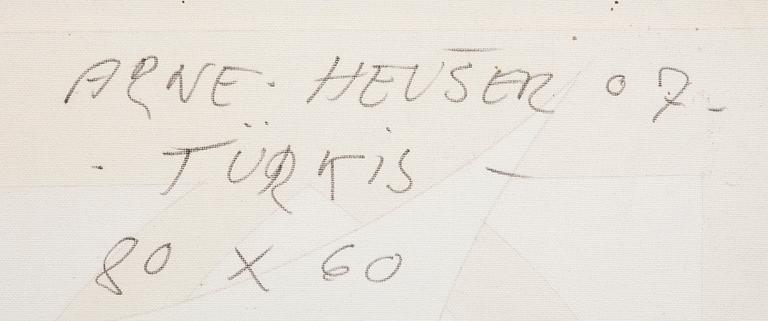 ARNE. HEUSER 07-
- TÜRKIS -
80 X 60